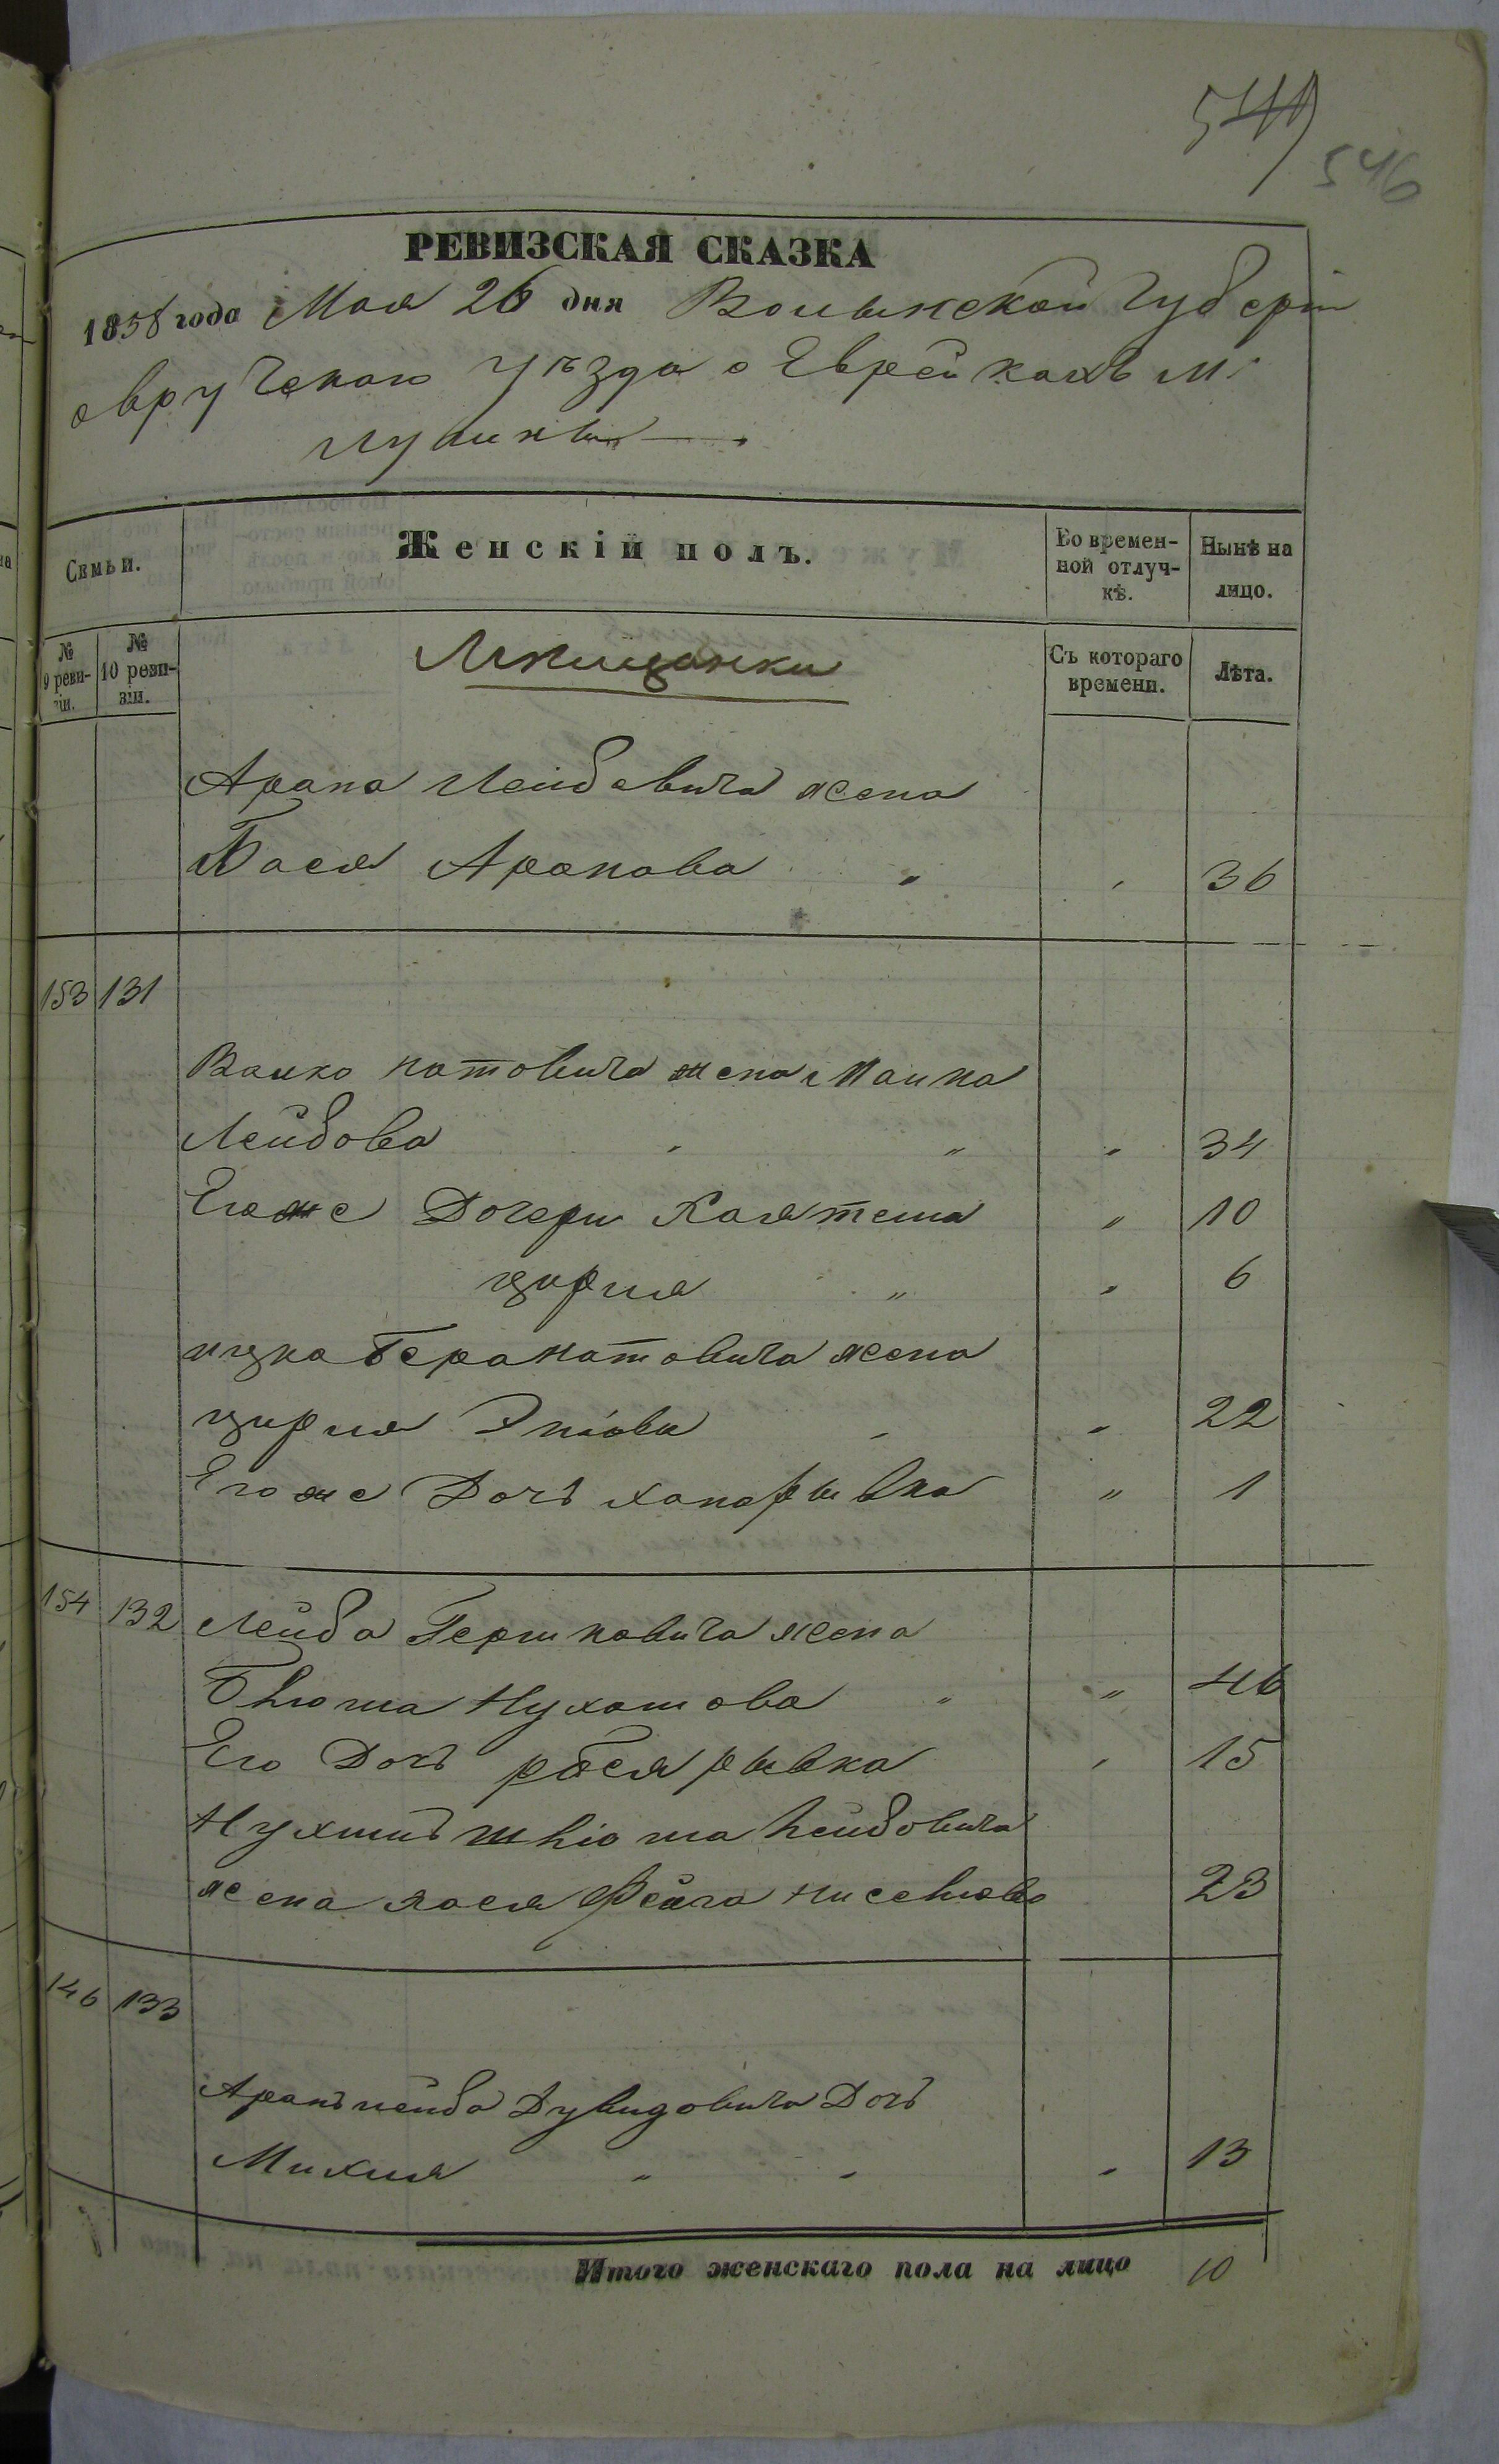 546
РЕВИЗСКАЯ СКАЗКА
1858 года Мая 26 дня Волынской Губерніи
овручского уѣзда о Еврейкахъ м:
лугинъ
Семьи.
Женскій полъ.
Во времен-
ной отлуч-
кѣ.
Нынѣ на
лицо.
№
9 реви-
зіи.
№
10 реви-
зіи.
Мѣщанки
Съ котораго
времени.
Лѣта.
Арона Лейбовича жена
Бася Аронова " " 36
153 131
Волко нотовича жена Малка
Лейбова " " " 34
Егоже Дочери Хаятема " 10
цирля " " 6
ицка Бера нотовича жена
цирля " " 22
Егоже Дочь хана рывка " 1
154 132 Лейба Гершковича жена
Блюма Нухимова " " 46
Его Дочь рося рывка " 15
Нухимъ шліома Лейбовича
жена хася Фейга 23
146 133
Аронъ лейба Дувидовича Дочь
Михля " " " 13
Итого женскаго пола на лицо 10